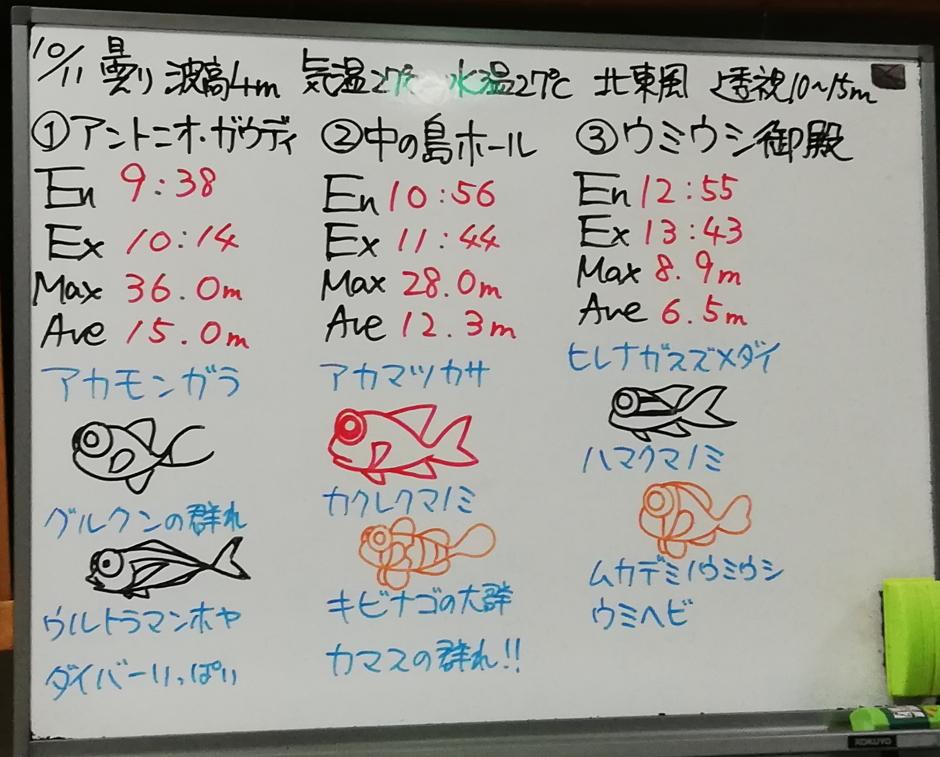 10/11 曇り 波高4m 気温27℃ 水温27℃ 北東風 透視10~15m
①アントニオ・ガウディ
En 9:38
Ex 10:14
Max 36.0m
Ave 15.0m
アカモンガラ
グルクンの群れ
ウルトラマンホヤ
ダイバーいっぱい
②中の島ホール
En 10:56
Ex 11:44
Max 28.0m
Ave 12.3m
アカマツカサ
カクレクマノミ
キビナゴの大群
カマスの群れ!!
③ウミウシ御殿
En 12:55
Ex 13:43
Max 8.9m
Ave 6.5m
ヒレナガスズメダイ
ハマクマノミ
ムカデミノウミウシ
ウミヘビ
KOKUYO